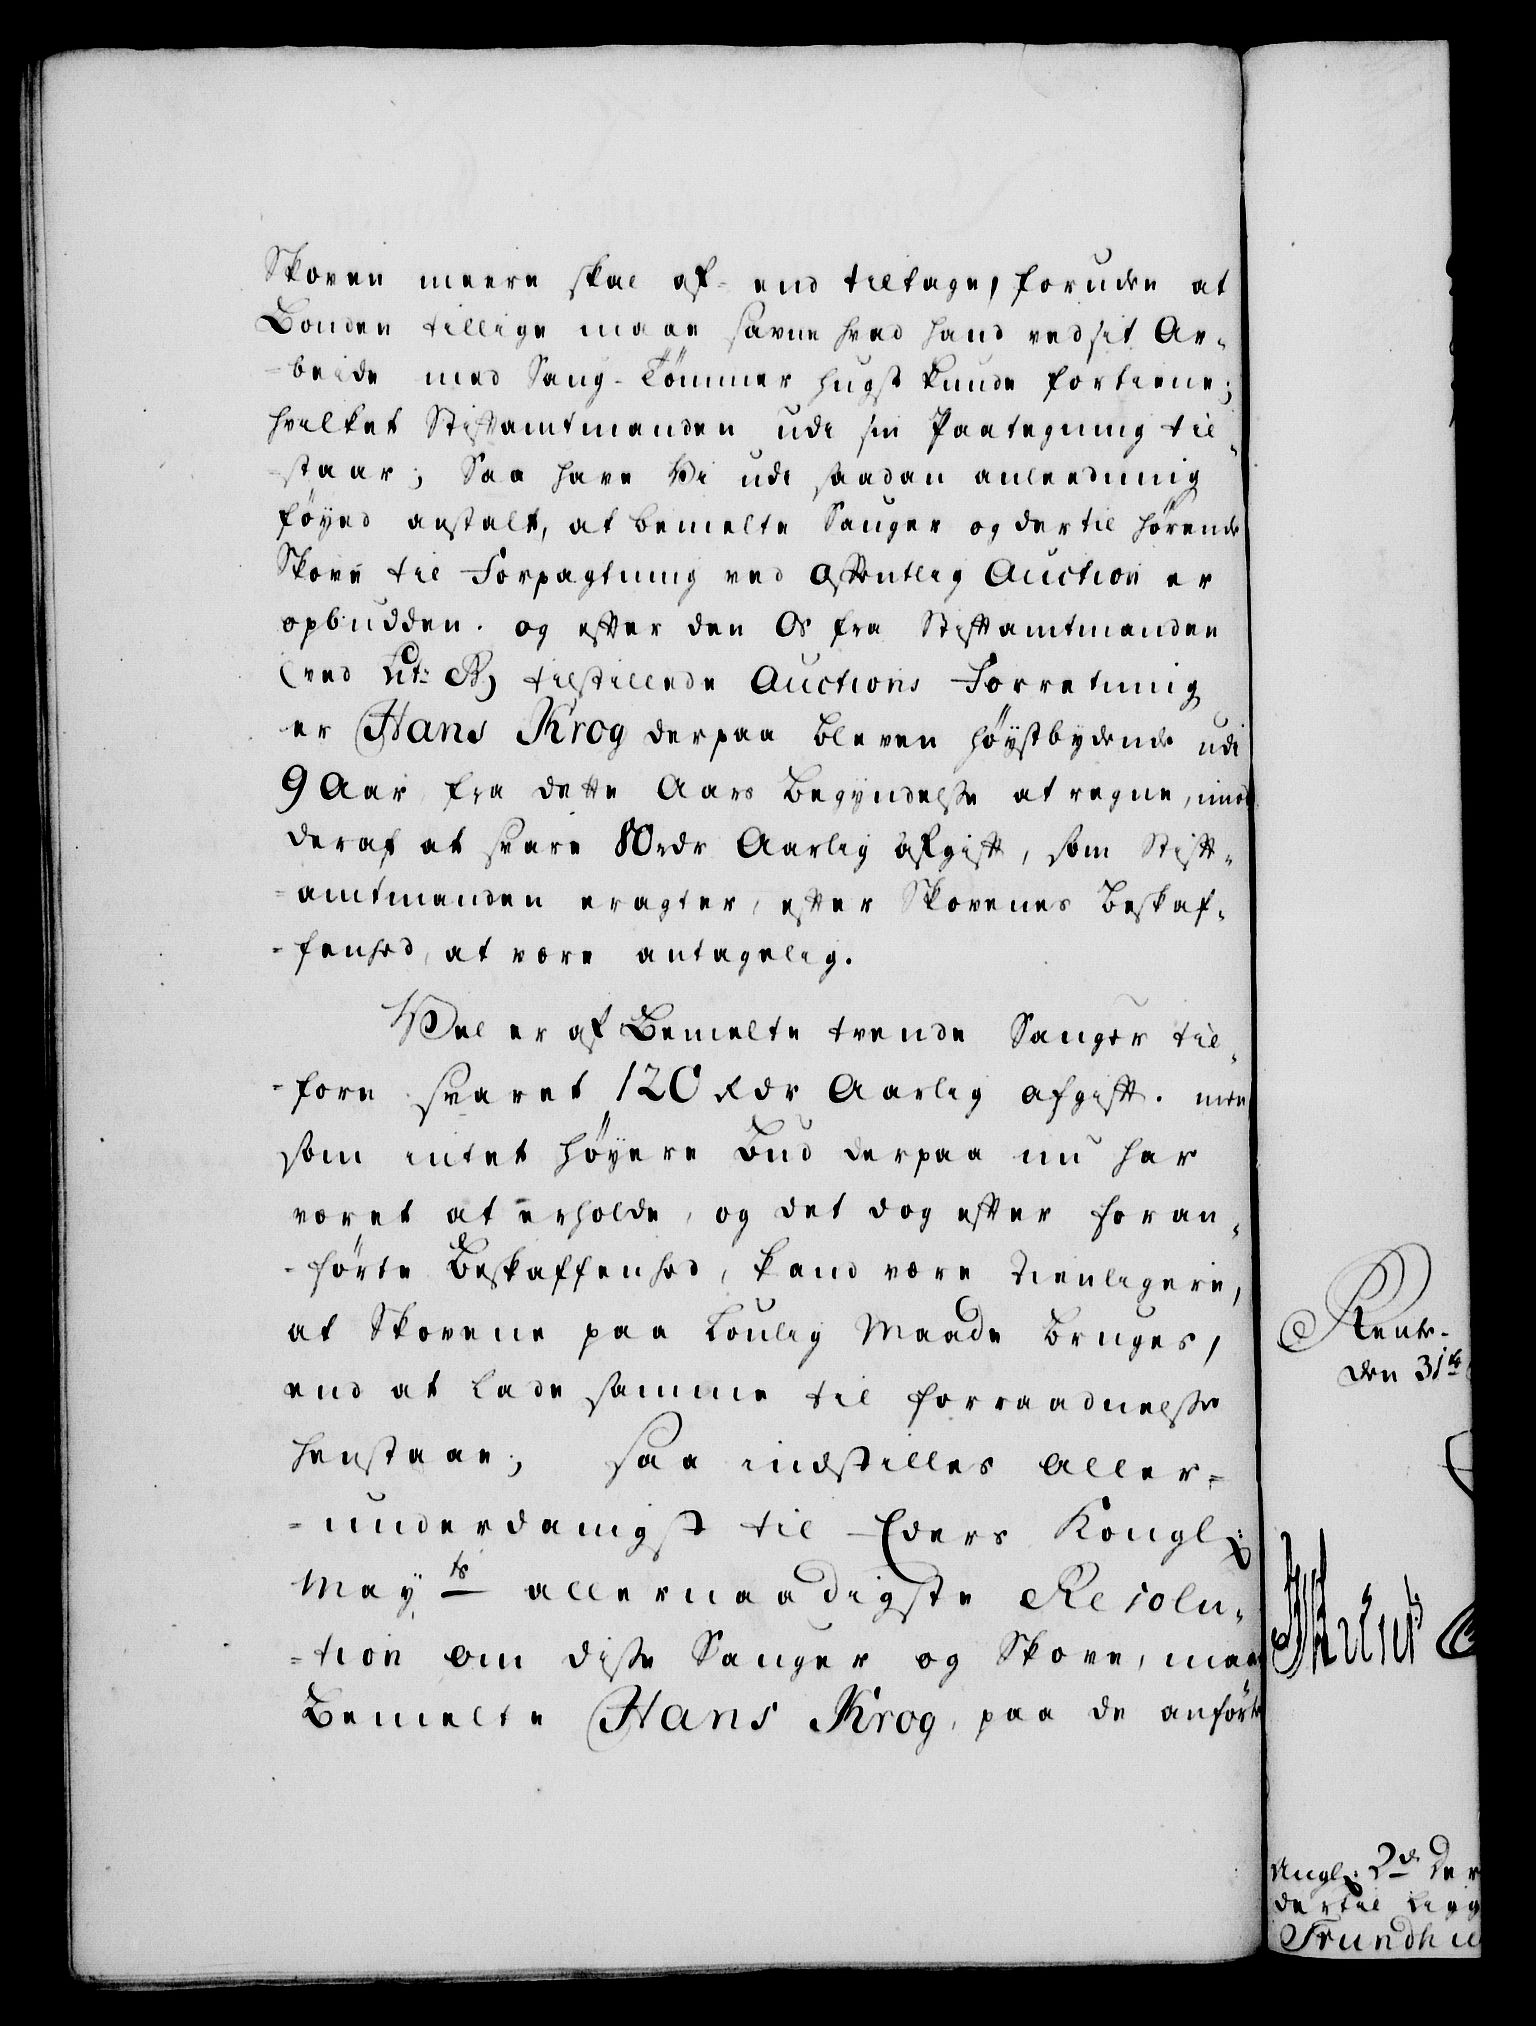 Skoven meere skal af- end tiltage, foruden at
Bonden tillige maae savne hvad hand ved sit Ar-
-beide med Saug-Tömmer hugst kunde fortiene;
hvilket Stiftamtmanden udi sin Paategning til-
-staar; Saa have Vi udi saadan anleedning
föyed anstalt, at bemelte Sauger og dertil hörende
Skove til Forpagtning ved Offentlig Auction er
opbudden. og efter den Os fra Stiftamtmanden
(ved Lit: B) tilstillede Auctions Forretning
er Hans Krog derpaa bleven höystbydende udi
9 Aar fra dette Aars Begyndelsse at regne, imod
deraf at svare 80 rdr Aarlig afgift, som Stift-
-amtmanden eragter, efter Skovenes Beskaf-
-fenhed, at være antagelig.
Vel er af Bemelte trende Sauger til-
-forn svaret 120 Rdr Aarlig afgift. men
som intet höyere Bud derpaa nu har
været at erholde, og det dog efter foran-
-förte Beskaffenhed, kand være tienligere,
at Skovene paa Loulig Maade bruges,
end at lade samme til forraadnelsse
henstaae; saa indstilles aller-
-underdanigst til Eders Kongl:
May:ts allernaadigste Resolu-
-tion om disse Sauger og Skove, maae
Bemelte Hans Krog, paa de anförte
Rente-
den 31te
Angl: 2de Der
dertil ligg
Trundhie